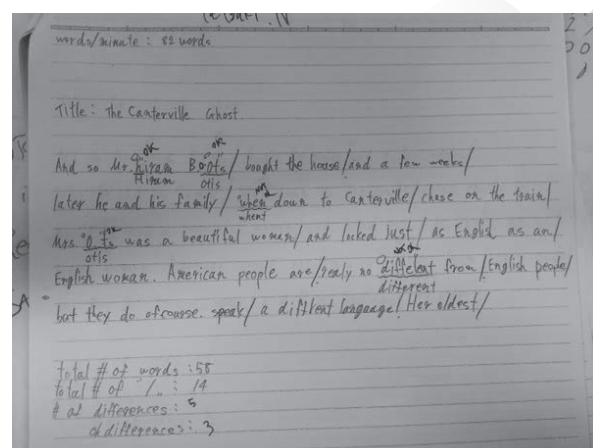 words/minute : 82 words
Title : The Canterville Ghost
OK OK
And so Mr. Hiram B. Otis / bought the house / and a few weeks /
Hiram otis
later he and his family / when down to Canterville / chase on the train /
whent
Mrs. Otis was a beautiful woman / and looked just / as English as an /
otis
English woman. American people are / realy no diffelent from / English people /
different
but they do ofcourse. speak / a diffrent language / Her oldest /
total # of words : 58
total # of / : 14
# of differences : 5
differences : 3